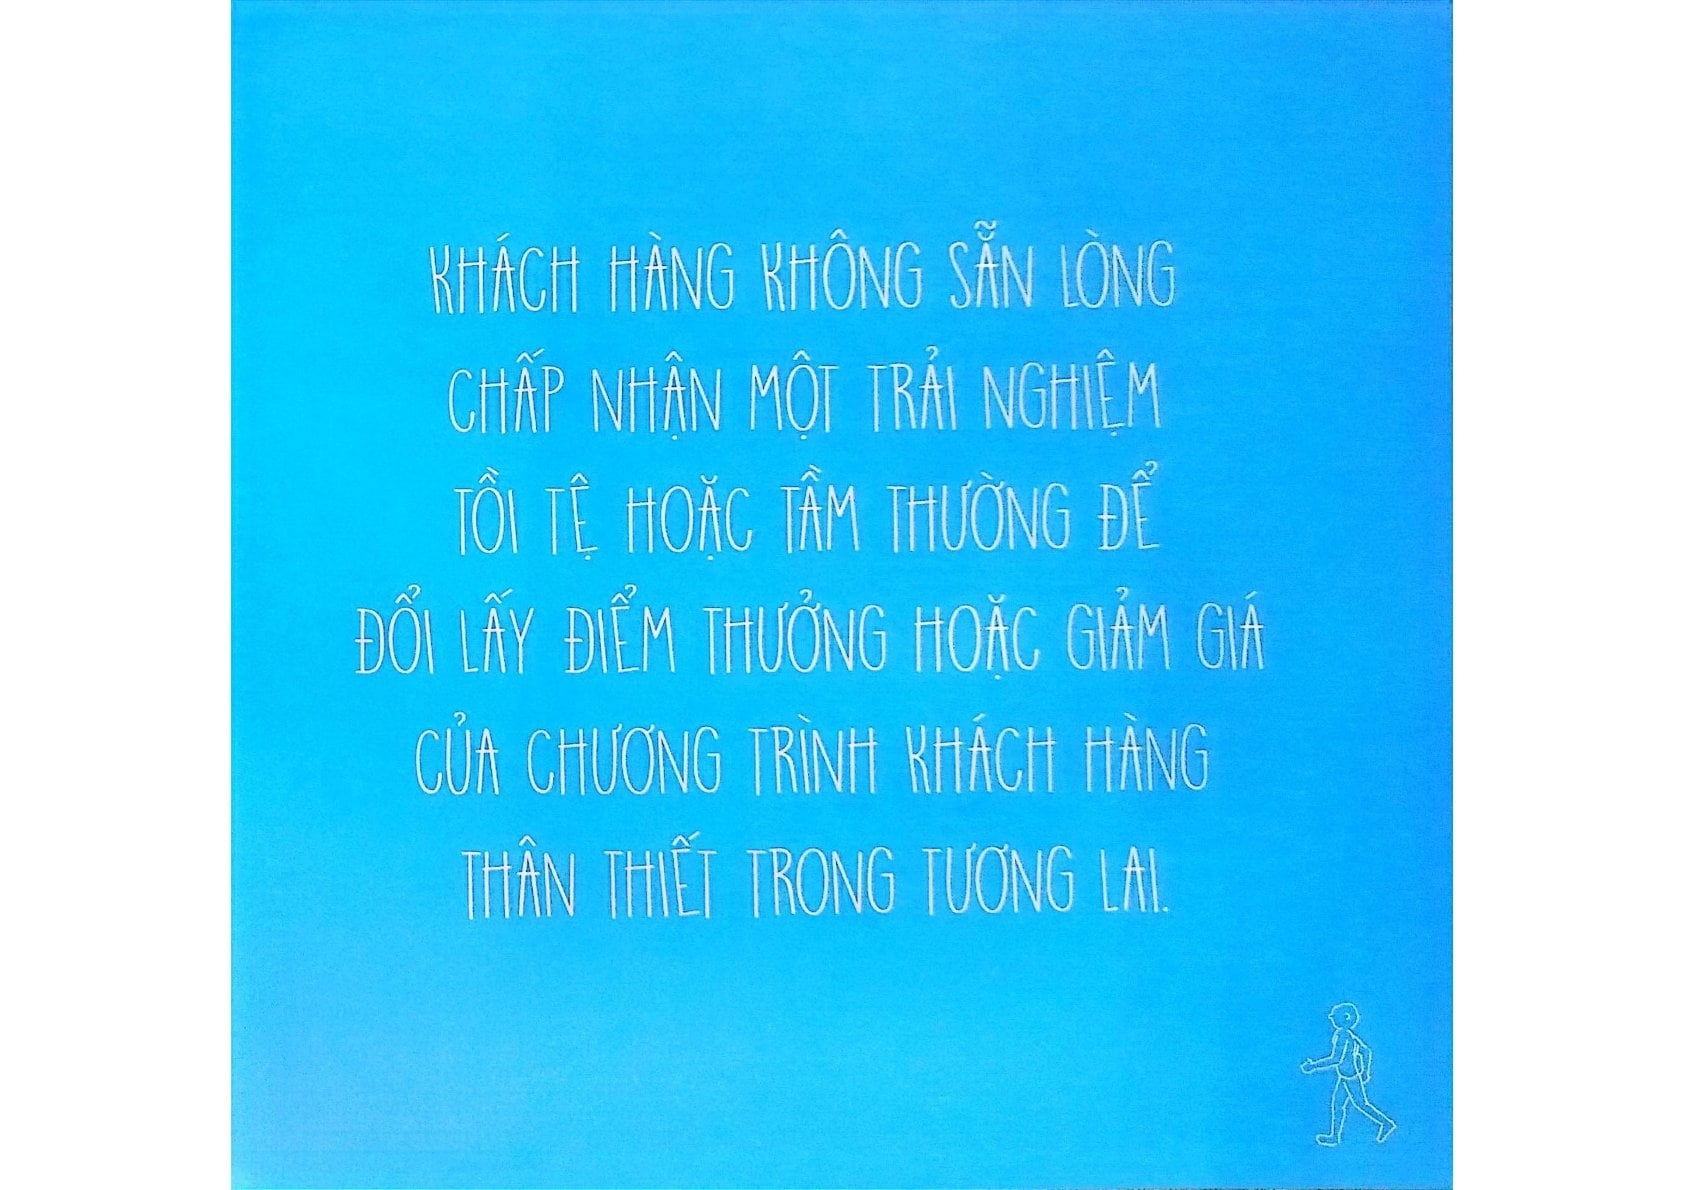 KHÁCH HÀNG KHÔNG SẴN LÒNG
CHẤP NHẬN MỘT TRẢI NGHIỆM
TỒI TỆ HOẶC TẦM THƯỜNG ĐỂ
ĐỔI LẤY ĐIỂM THƯỞNG HOẶC GIẢM GIÁ
CỦA CHƯƠNG TRÌNH KHÁCH HÀNG
THÂN THIẾT TRONG TƯƠNG LAI.